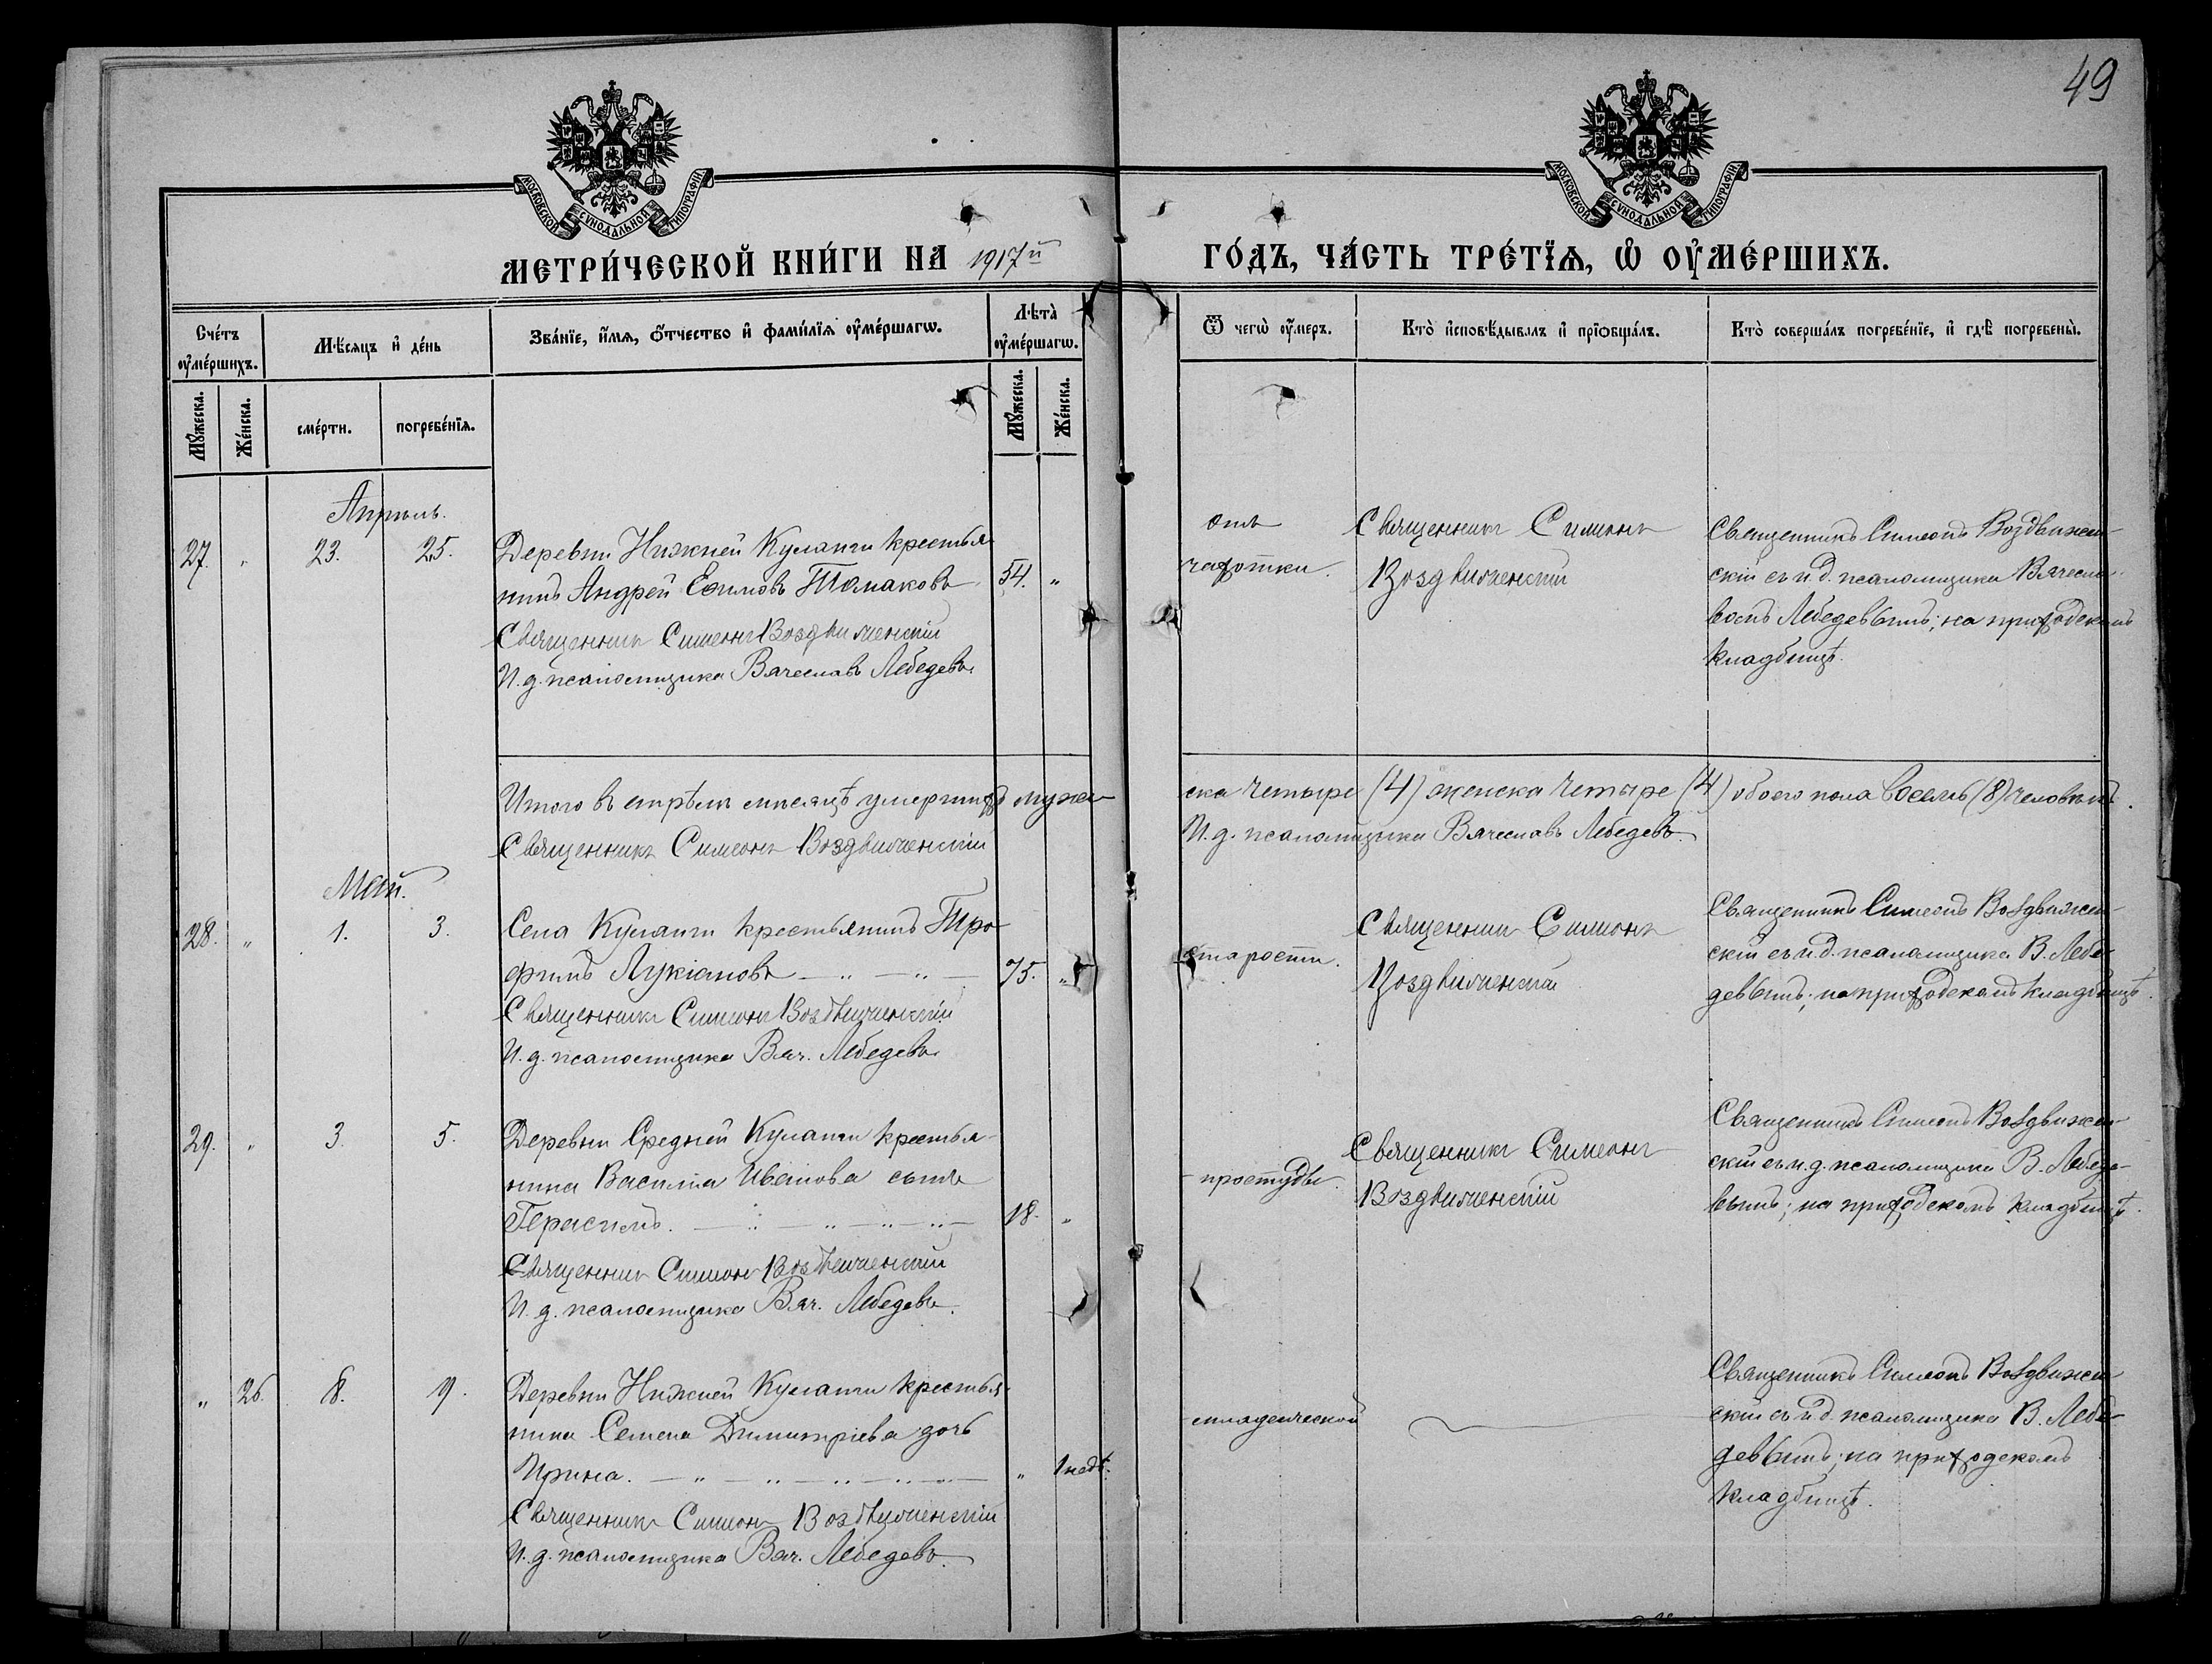 49
МОСКОВСКОЙ СУНОДАЛЬНОЙ ТИПОГРАФІИ
МОСКОВСКОЙ СУНОДАЛЬНОЙ ТИПОГРАФІИ
МЕТРИ́ЧЕСКОЙ КНИ́ГИ НА 1917й
ГО́ДЪ, ЧА́СТЬ ТРЕ́ТЇѦ, Ѡ҆ ОУ҆МЕ́РШИХЪ.
Сче́тъ оу҆ме́ршихъ.
Мѣ́сяцъ и҆ де́нь
Зва́нїе, и҆́мѧ, ѻ҆́тчество и҆ фами́лїѧ оу҆ме́ршагѡ.
Лѣта̀ оу҆ме́ршагѡ.
Ѿ чегѡ̀ оу҆́меръ.
Кто̀ и҆сповѣ́дывалъ и҆ прїѡбща́лъ.
Кто̀ соверша́лъ погребе́нїе, и҆ гдѣ̀ погребены̀.
Мꙋ́жеска.
Же́нска.
сме́рти.
погребе́нїѧ.
Мꙋ́жеска.
Же́нска.
Апрѣль.
27. " 23. 25.
Деревни Нижней Куланги крестья-
нинъ Андрей Ефимовъ Томаковъ 54. "
Священникъ Симеонъ Воздвиженскій
И.д. псаломщика Вячеславъ Лебедевъ.
отъ
чахотки.
Священникъ Симеонъ
Воздвиженскій
Священникъ Симеонъ Воздвижен-
скій съ и.д. псаломщика Вячесла-
вомъ Лебедевымъ; на приходскомъ
кладбищѣ.
Итого въ апрѣлѣ мѣсяцѣ умершихъ муже-
ска четыре (4) женска четыре (4) обоего пола восемь (8) человѣкъ.
Священникъ Симеонъ Воздвиженскій
И.д. псаломщика Вячеславъ Лебедевъ.
Май.
28. " 1. 3.
Села Куланги крестьянинъ Тро-
фимъ Лукіановъ — " — " — 75. "
Священникъ Симеонъ Воздвиженскій
И.д. псаломщика Вяч. Лебедевъ
старости.
Священникъ Симеонъ
Воздвиженскій
Священникъ Симеонъ Воздвижен-
скій съ и.д. псаломщика В. Лебе-
девымъ; на приходскомъ кладбищѣ.
29. " 3. 5.
Деревни Средней Куланги крестья-
нина Василія Иванова сынъ
Герасимъ. — " — " — " — " — 18. "
Священникъ Симеонъ Воздвиженскій
И.д. псаломщика Вяч. Лебедевъ.
простуды.
Священникъ Симеонъ
Воздвиженскій
Священникъ Симеонъ Воздвижен-
скій съ и.д. псаломщика В. Лебеде-
вымъ; на приходскомъ кладбищѣ.
" 26. 8. 9.
Деревни Нижней Куланги крестья-
нина Семена Димитріева дочь
Ирина. — " — " — " — " — " 1 недѣ.
Священникъ Симеонъ Воздвиженскій
И.д. псаломщика Вяч. Лебедевъ.
младенческой
Священникъ Симеонъ Воздвижен-
скій съ и.д. псаломщика В. Лебе-
девымъ; на приходскомъ
кладбищѣ.